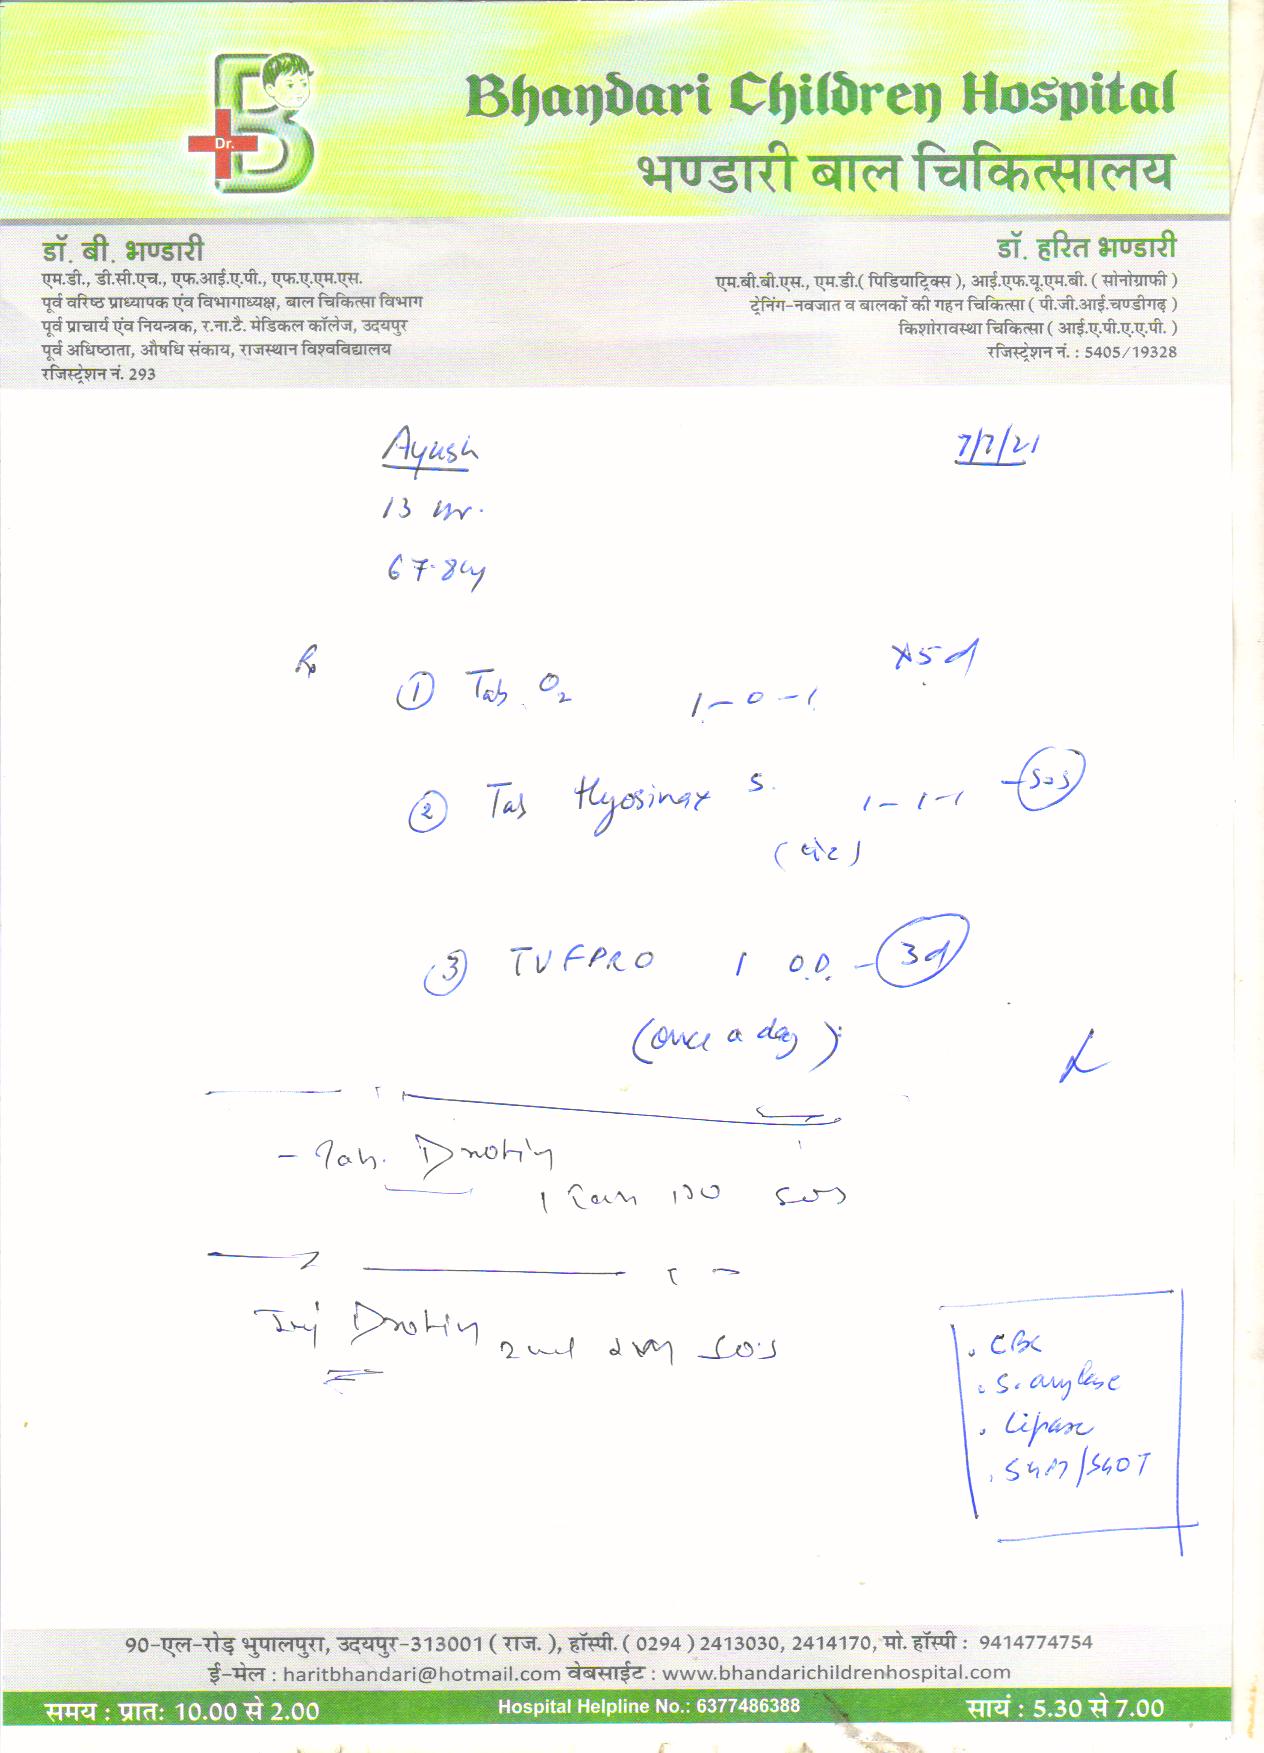 Dr.
Bhandari Children Hospital
भण्डारी बाल चिकित्सालय
डॉ. बी. भण्डारी
एम.डी., डी.सी.एच., एफ.आई.ए.पी., एफ.ए.एम.एस.
पूर्व वरिष्ठ प्राध्यापक एंव विभागाध्यक्ष, बाल चिकित्सा विभाग
पूर्व प्राचार्य एंव नियन्त्रक, र.ना.टै. मेडिकल कॉलेज, उदयपुर
पूर्व अधिष्ठाता, औषधि संकाय, राजस्थान विश्वविद्यालय
रजिस्ट्रेशन नं. 293
डॉ. हरित भण्डारी
एम.बी.बी.एस., एम.डी.( पिडियाट्रिक्स ), आई.एफ.यू.एम.बी. ( सोनोग्राफी )
ट्रेनिंग-नवजात व बालकों की गहन चिकित्सा ( पी.जी.आई.चण्डीगढ़ )
किशोरावस्था चिकित्सा ( आई.ए.पी.ए.ए.पी. )
रजिस्ट्रेशन नं. : 5405/19328
Ayush 7/7/21
13
67.8
Rx
① Tab. O2 1-0-1 x5d
② Tab Hyosinax S. 1-1-1 - SOS
(पेट)
③ TUFPRO 1 O.D. - 3d
(once a day)
- Tab. Drotin
1 SOS
Inj Drotin 2ml SOS
. CBC
. S. amylase
. Lipase
. SGPT/SGOT
90-एल-रोड़ भुपालपुरा, उदयपुर-313001 ( राज. ), हॉस्पी. ( 0294 ) 2413030, 2414170, मो. हॉस्पी : 9414774754
ई-मेल : haritbhandari@hotmail.com वेबसाईट : www.bhandarichildrenhospital.com
समय : प्रातः 10.00 से 2.00 Hospital Helpline No.: 6377486388 सायं : 5.30 से 7.00